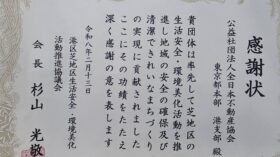 感謝状
公益社団法人全日本不動産協会
東京都本部 港支部 殿
貴団体は率先して芝地区の
生活安全・環境美化活動を推
進し地域の安全の確保及び
清潔できれいなまちづくり
の実現に貢献されました
ここにその功績をたたえ
深く感謝の意を表します
令和八年二月十三日
港区芝地区生活安全・環境美化
活動推進協議会
会長 杉山 光敬